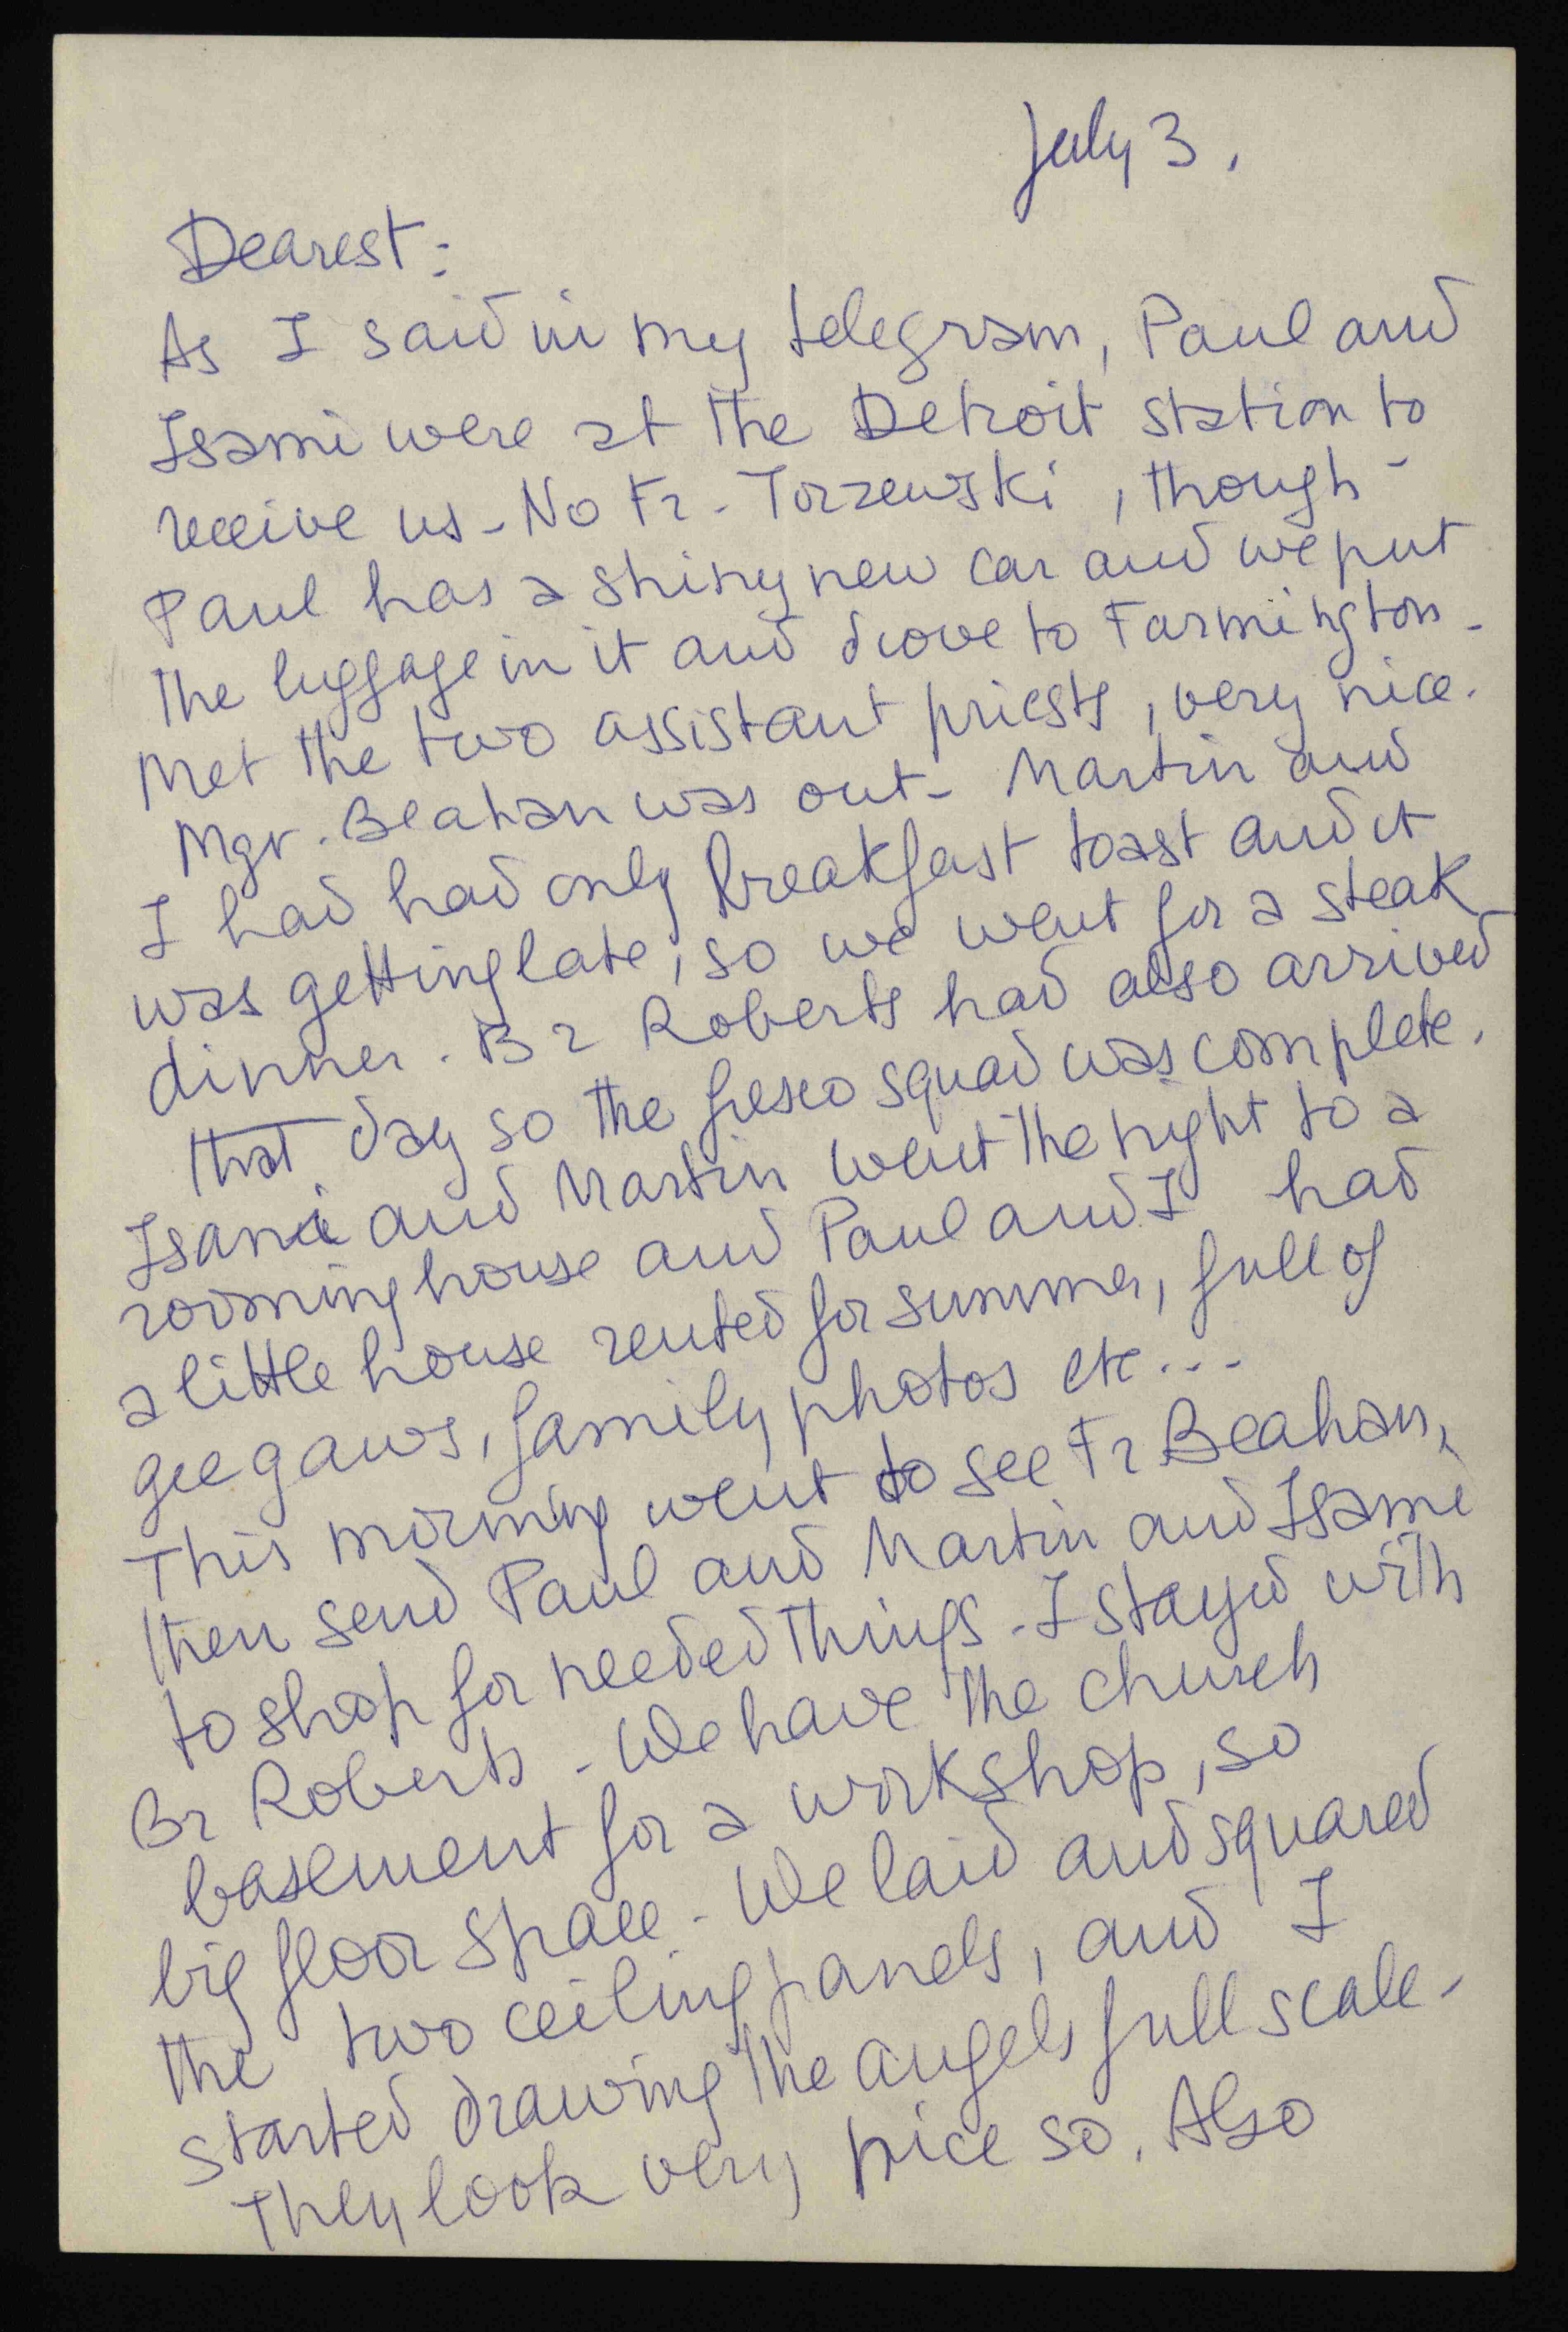 July 3.
Dearest:
As I said in my telegram, Paul and
Isami were at the Detroit station to
receive us - No Fr. Torzewski, though -
Paul has a shiny new car and we put
the luggage in it and drove to Farmington -
Met the two assistant priests, very nice.
Mgr. Beahan was out - Martin and
I had had only breakfast toast and it
was getting late, so we went for a steak
dinner. Br Roberts had also arrived
that day so the fresco squad was complete.
Isami and Martin went the night to a
rooming house and Paul and I had
a little house rented for summer, full of
gee gaws, family photos etc...
This morning went to see Fr Beahan,
then send Paul and Martin and Isami
to shop for needed things - I stayed with
Br Roberts - We have the church
basement for a workshop, so
big floor space - We laid and squared
the two ceiling panels, and I
started drawing the angels full scale -
They look very nice so. Also